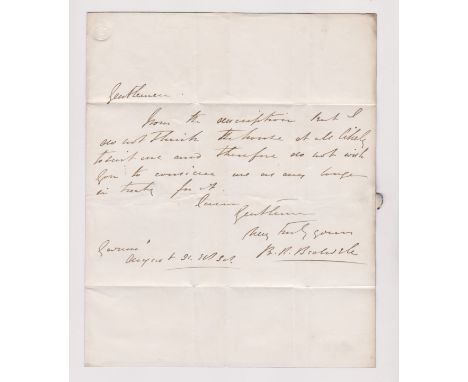 Gentlemen
From the description but I
do not think the house at all likely
to suit me and therefore do not wish
you to consider me as any longer
in treaty for it.
Gentlemen
Very truly yours
August 31.
B. R.